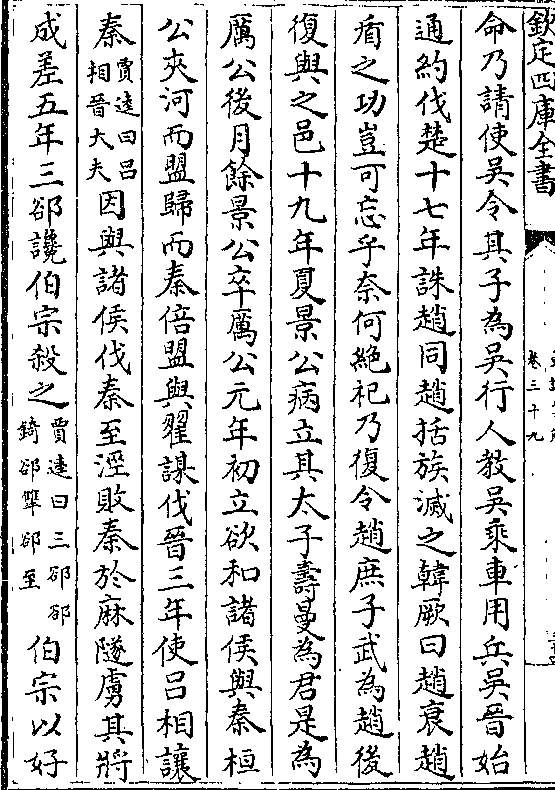 欽定四庫全書
卷三十九
命乃請使吳令其子為吳行人教吳乘車用兵吳晉始
通約伐楚十七年誅趙同趙括族滅之韓厥曰趙衰趙
盾之功豈可忘乎奈何絶祀乃復令趙庶子武為趙後
復與之邑十九年夏景公病立其太子壽曼為君是為
厲公後月餘景公卒厲公元年初立欲和諸侯與秦桓
公夾河而盟歸而秦倍盟與翟謀伐晉三年使呂相讓
秦賈逵曰呂相晉大夫因與諸侯伐秦至涇敗秦於麻隧虜其將
成差五年三郤讒伯宗殺之賈逵曰三郤郤錡郤犨郤至伯宗以好